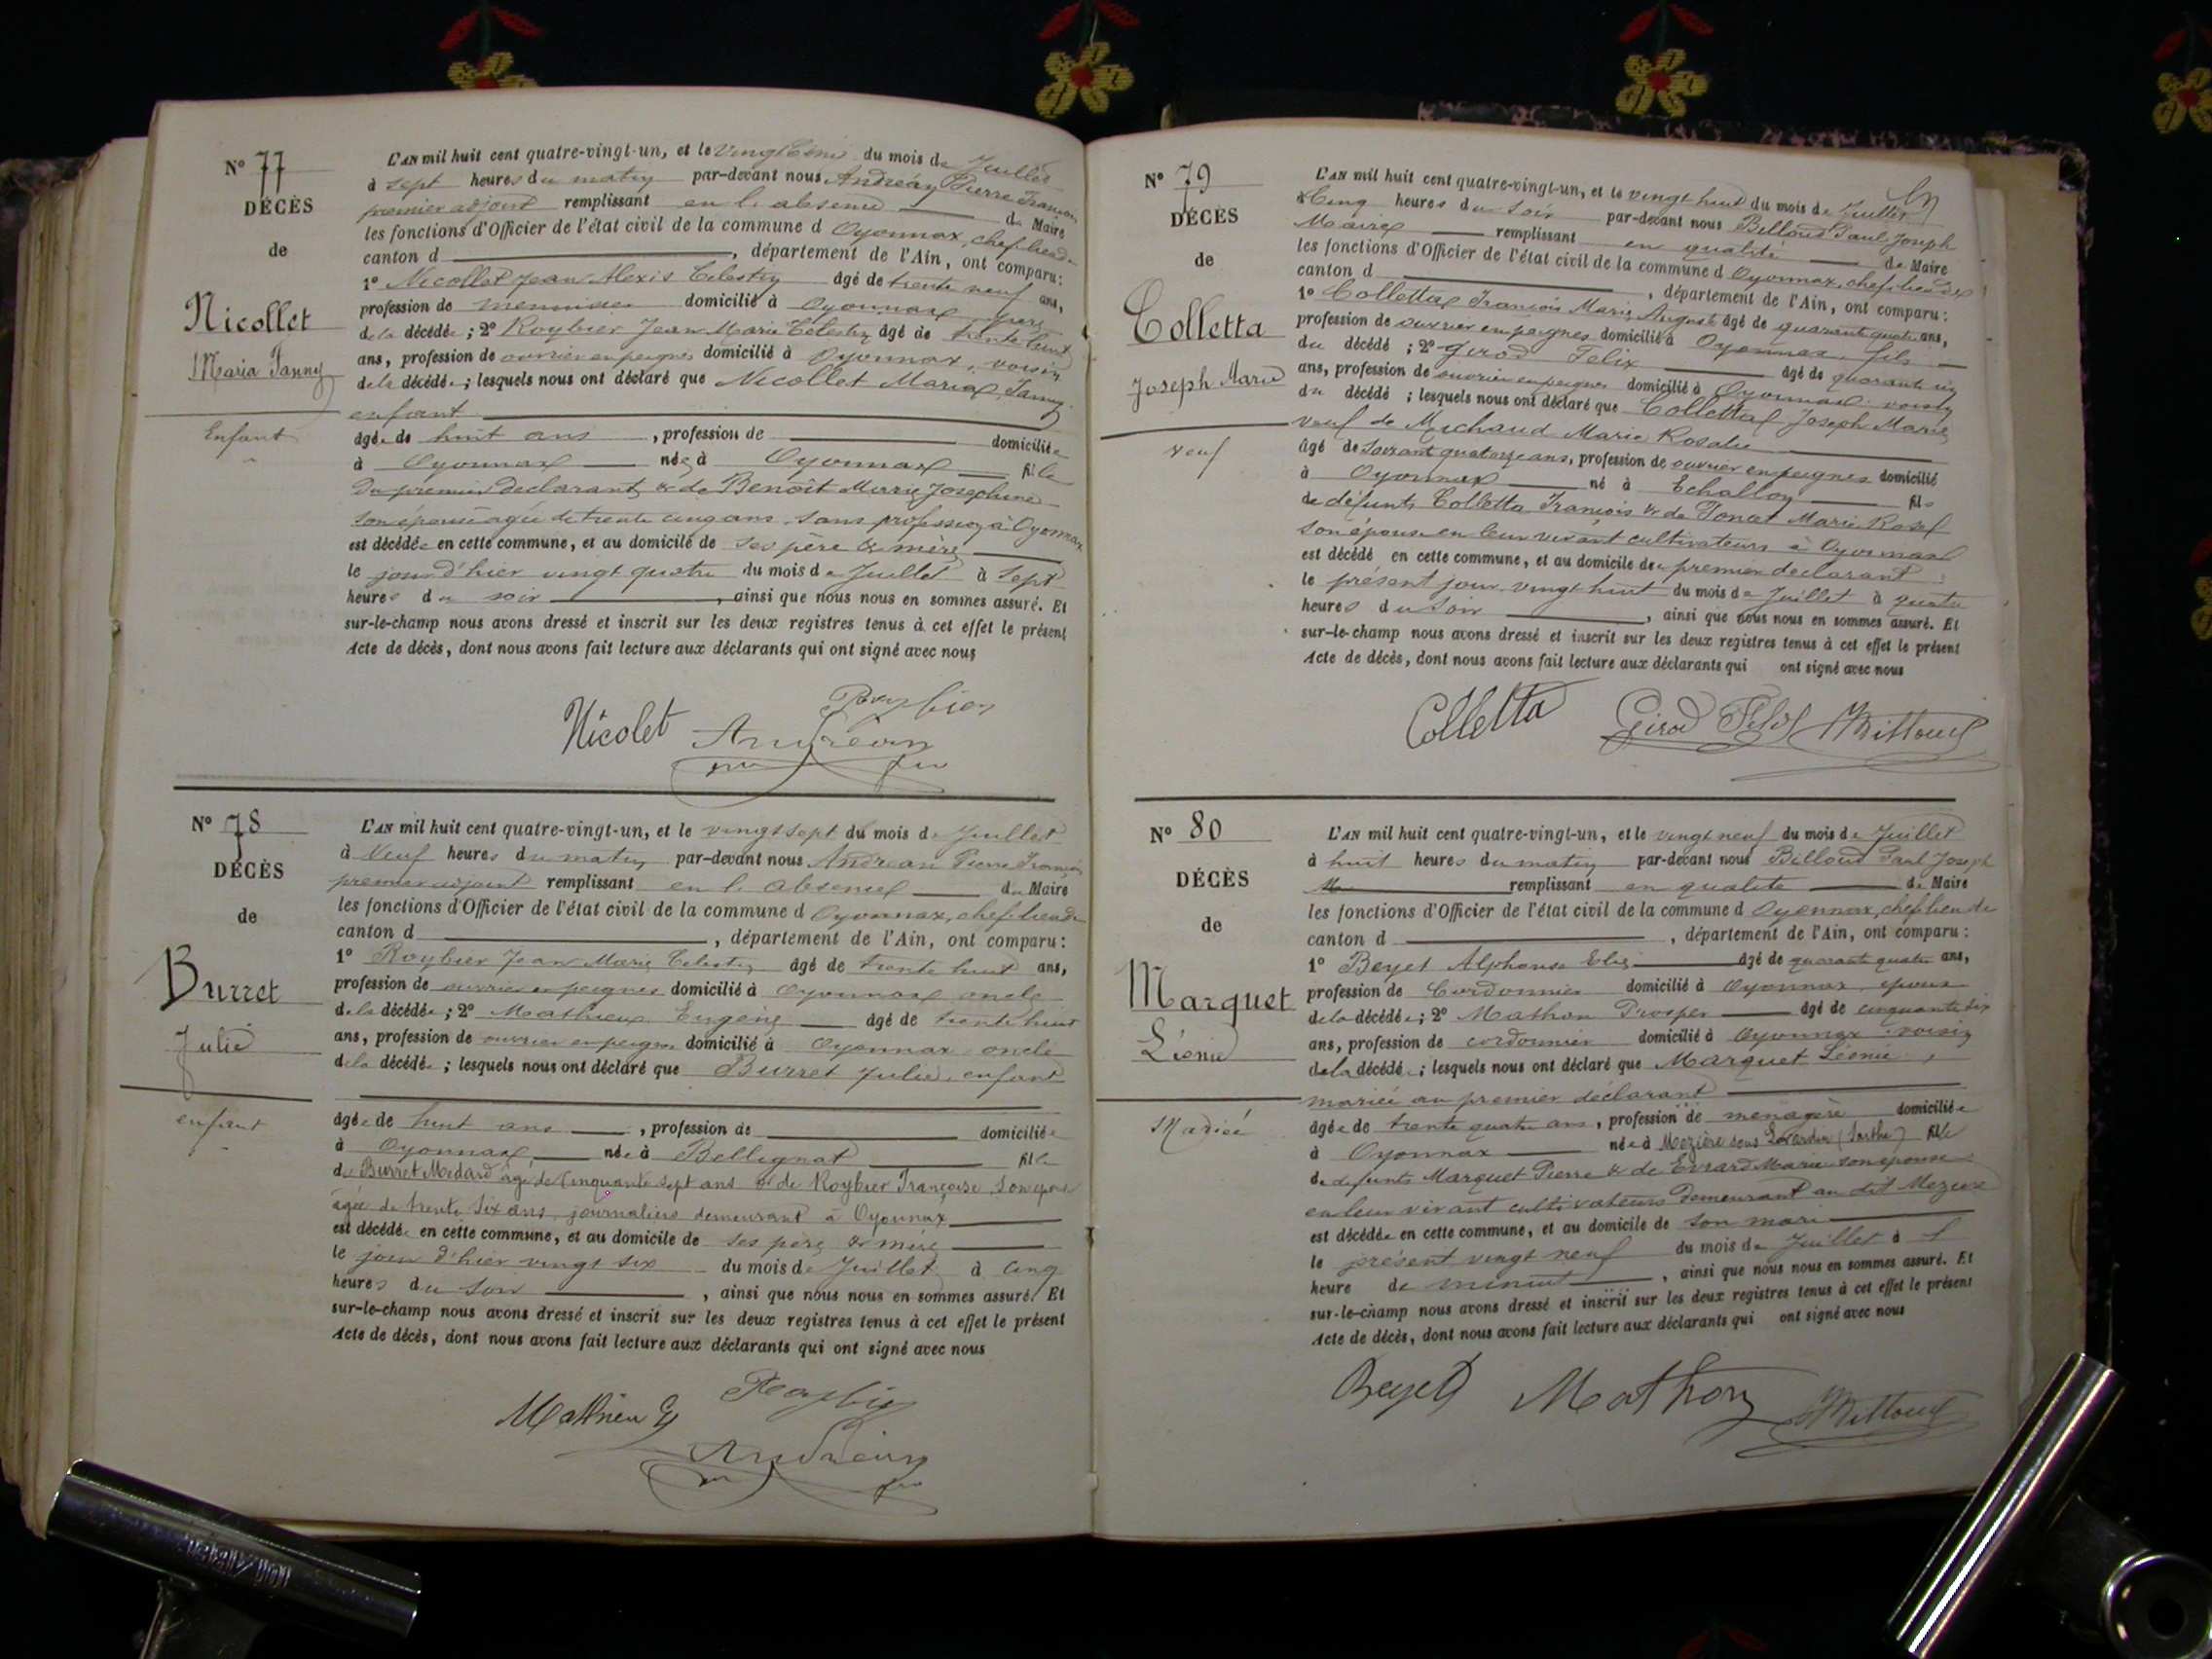 N° 77
DÉCÈS
de
Nicollet
Maria Fanny
Enfant
L'AN mil huit cent quatre-vingt-un, et le vingt cinq du mois de Juillet
à sept heures du matin par-devant nous Andréan Pierre François
premier adjoint remplissant en l'absence du Maire
les fonctions d'Officier de l'état civil de la commune d Oyonnax, chef lieu de
canton d , département de l'Ain, ont comparu:
1° Nicollet Jean Alexis Celestin âgé de trente neuf ans,
profession de menuisier domicilié à Oyonnax, père
de la décédée; 2° Roybier Jean Marie Celestin âgé de trente huit
ans, profession de ouvrier en peignes domicilié à Oyonnax, voisin
de la décédée; lesquels nous ont déclaré que Nicollet Maria Fanny
enfant
âgée de huit ans , profession de domiciliée
à Oyonnax née à Oyonnax fille
du premier declarant & de Benoît Marie Josephine
son épouse agée de trente cinq ans, sans profession à Oyonnax
est décédée en cette commune, et au domicile de ses père & mère
le jour d'hier vingt quatre du mois de Juillet à sept
heures du soir , ainsi que nous nous en sommes assuré. Et
sur-le-champ nous avons dressé et inscrit sur les deux registres tenus à cet effet le présent
Acte de décès, dont nous avons fait lecture aux déclarants qui ont signé avec nous
Roybier
Nicolet Andréan
N° 78
DÉCÈS
de
Burret
Julie
enfant
L'AN mil huit cent quatre-vingt-un, et le vingt sept du mois de Juillet
à Neuf heures du matin par-devant nous Andréan Pierre François
premier adjoint remplissant en l'absence du Maire
les fonctions d'Officier de l'état civil de la commune d Oyonnax, chef lieu de
canton d , département de l'Ain, ont comparu:
1° Roybier Jean Marie Celestin âgé de trente huit ans,
profession de ouvrier en peignes domicilié à Oyonnax oncle
de la décédée; 2° Mathieu Eugène âgé de trente huit
ans, profession de ouvrier en peignes domicilié à Oyonnax oncle
de la décédée; lesquels nous ont déclaré que Burret Julie, enfant
âgée de huit ans , profession de domiciliée
à Oyonnax, née à Bellignat fille
de Burret Médard âgé de Cinquante sept ans & de Roybier Françoise Son épouse
agée de trente six ans, journaliers demeurant à Oyonnax
est décédée en cette commune, et au domicile de ses père & mère
le jour d'hier vingt six du mois de Juillet à cinq
heures du soir , ainsi que nous nous en sommes assuré. Et
sur-le-champ nous avons dressé et inscrit sur les deux registres tenus à cet effet le présent
Acte de décès, dont nous avons fait lecture aux déclarants qui ont signé avec nous
Roybier
Mathieu E
Andréan
N° 79
DÉCÈS
de
Colletta
Joseph Marie
veuf
L'AN mil huit cent quatre-vingt-un, et le vingt huit du mois de Juillet
à Cinq heures du soir par-devant nous Billoud Paul Joseph
Maire remplissant en qualité de Maire
les fonctions d'Officier de l'état civil de la commune d Oyonnax, chef lieu de
canton d , département de l'Ain, ont comparu:
1° Colletta François Marie Auguste âgé de quarante quatre ans,
profession de ouvrier en peignes domicilié à Oyonnax, fils
du décédé; 2° Girod Felix âgé de quarante
ans, profession de ouvrier en peignes domicilié à Oyonnax voisin
du décédé; lesquels nous ont déclaré que Colletta Joseph Marie
veuf de Michaud Marie Rosalie
âgé de soixant quatorze ans, profession de ouvrier en peignes domicilié
à Oyonnax né à Echallon fils
de défunts Colletta François & de Poncet Marie Rose
son épouse en leur vivant cultivateurs à Oyonnax
est décédé en cette commune, et au domicile de premier declarant
le présent jour vingt huit du mois de Juillet à quatre
heures du soir , ainsi que nous nous en sommes assuré. Et
sur-le-champ nous avons dressé et inscrit sur les deux registres tenus à cet effet le présent
Acte de décès, dont nous avons fait lecture aux déclarants qui ont signé avec nous
Colletta Girod Felix Billoud
N° 80
DÉCÈS
de
Marquet
Léonie
Mariée
L'AN mil huit cent quatre-vingt-un, et le vingt neuf du mois de Juillet
à huit heures du matin par-devant nous Billoud Paul Joseph
M remplissant en qualité de Maire
les fonctions d'Officier de l'état civil de la commune d Oyonnax, chef lieu de
canton d , département de l'Ain, ont comparu:
1° Beyet Alphonse Elie âgé de quarante quatre ans,
profession de Cordonnier domicilié à Oyonnax, époux
de la décédée; 2° Mathon Prosper âgé de cinquante six
ans, profession de cordonnier domicilié à Oyonnax voisin
de la décédée; lesquels nous ont déclaré que Marquet Léonie,
mariée au premier déclarant
âgée de trente quatre ans, profession de ménagère domiciliée
à Oyonnax née à Mezière sous (Sarthe) fille
de defunts Marquet Pierre & de Evrard Marie son épouse
en leur vivant cultivateurs demeurant au dit Mezière
est décédée en cette commune, et au domicile de son mari
le présent vingt neuf du mois de Juillet à l
heure de minuit , ainsi que nous nous en sommes assuré. Et
sur-le-champ nous avons dressé et inscrit sur les deux registres tenus à cet effet le présent
Acte de décès, dont nous avons fait lecture aux déclarants qui ont signé avec nous
Beyet Mathon Billoud